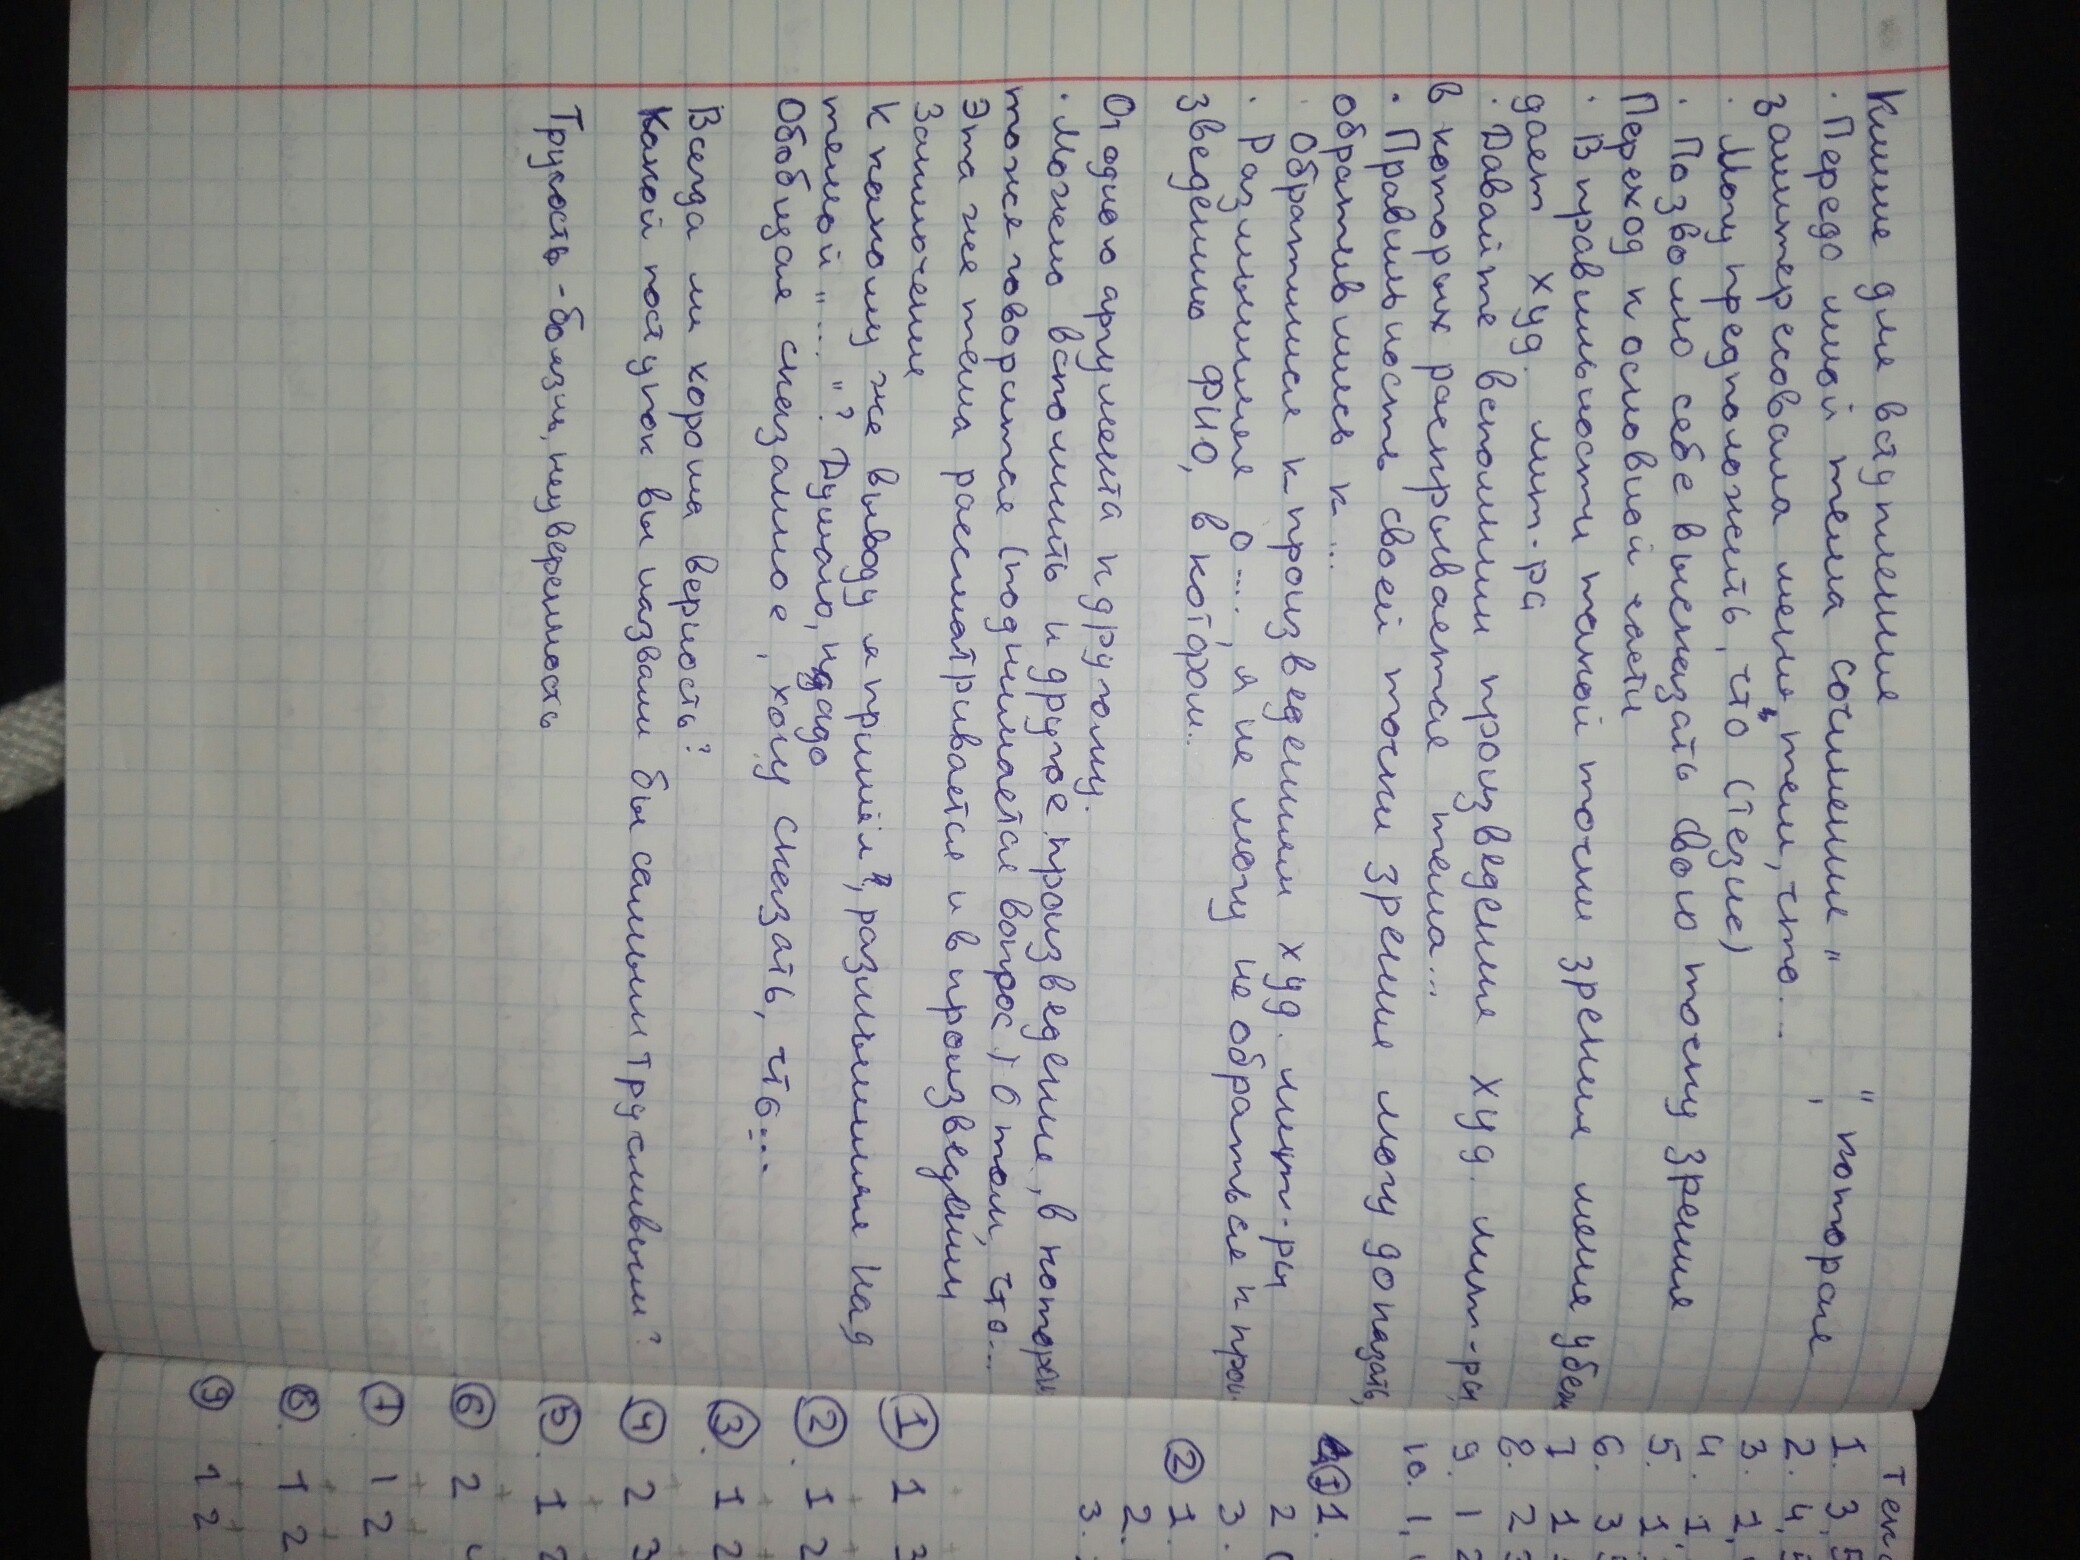 Клише для вступления
· Передо мной тема сочинения " ", которая
заинтересовала меня тем, что...
· Могу предположить, что (тезис)
· Позволю себе высказать свою точку зрения
Переход к основной части
· В правильности такой точки зрения меня убеж
дает худ. лит-ра
· Давайте вспомним произведения худ. лит-ры,
в которых раскрывается тема...
· Правильность своей точки зрения могу доказать,
обратившись к...
· Обратимся к произведениям худ. лит-ры
· Размышляя о..., я не могу не обратиться к прои
зведению ФИО, в котором..
От одного аргумента к другому.
· Можно вспомнить и другое произведение, в котором
тоже говорится (поднимается вопрос) о том, что...
Эта же тема рассматривается и в произведении
Заключение
К какому же выводу я пришёл, размышляя над
темой "... "? Думаю, надо
Обобщая сказанное, хочу сказать, что...
Всегда ли хороша верность?
Какой поступок вы назвали бы самым трусливым?
Трусость - боязнь, неуверенность
1. 3,
2. 4,
3. 1,
4. 1,
5. 1
6. 3
7 1
8. 2
9. 1 2
10. 1,
① 1.
2
3.
② 1.
2.
3.
① 1 3
② 1 2
③ 1 2
④ 2 3
⑤ 1 2
⑥ 2
⑦ 1 2
⑧ 1 2
⑨ 1 2